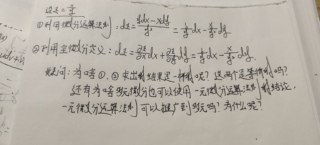 设 z = x/y
①利用微分运算法则: dz = (ydx - xdy)/y² = 1/y dx - x/y² dy
②利用全微分定义: dz = ∂z/∂x dx + ∂z/∂y dy = 1/y dx - x/y² dy
疑问: 为啥①、②求出的结果是一样的呢? 这两个是等价的吗?
还有为啥多元微分也可以使用一元微分运算法则的结论,
一元微分运算法则可以推广到多元吗? 为什么呢?